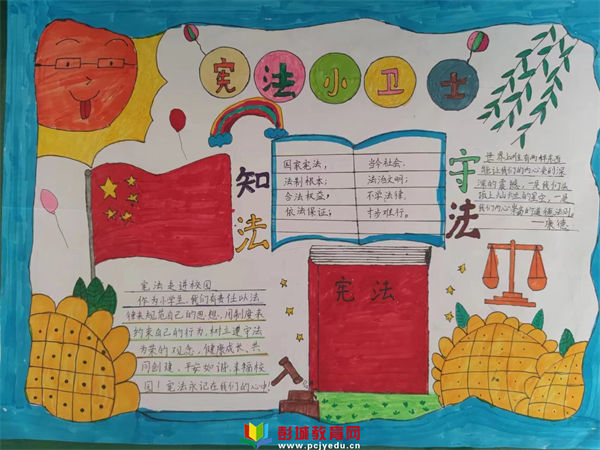 宪法小卫士
知法
国家宪法,
法制根本;
合法权益,
依法保证;
当今社会.
法治文明;
不学法律.
寸步难行。
守法
世界上唯有两样东西
能让我们的内心受到深
深的震撼,一是我们头
顶上灿烂的星空,一是
我们内心崇高的道德法则。
——康德
宪法走进校园
作为小学生,我们有责任以法
律来规范自己的思想,用制度来
约束自己的行为,树立遵守法
为荣的观念,健康成长、共
同创建、平安和谐幸福校
园!宪法永记在我们的心中!
宪法
彭城教育网
www.pcjyedu.cn